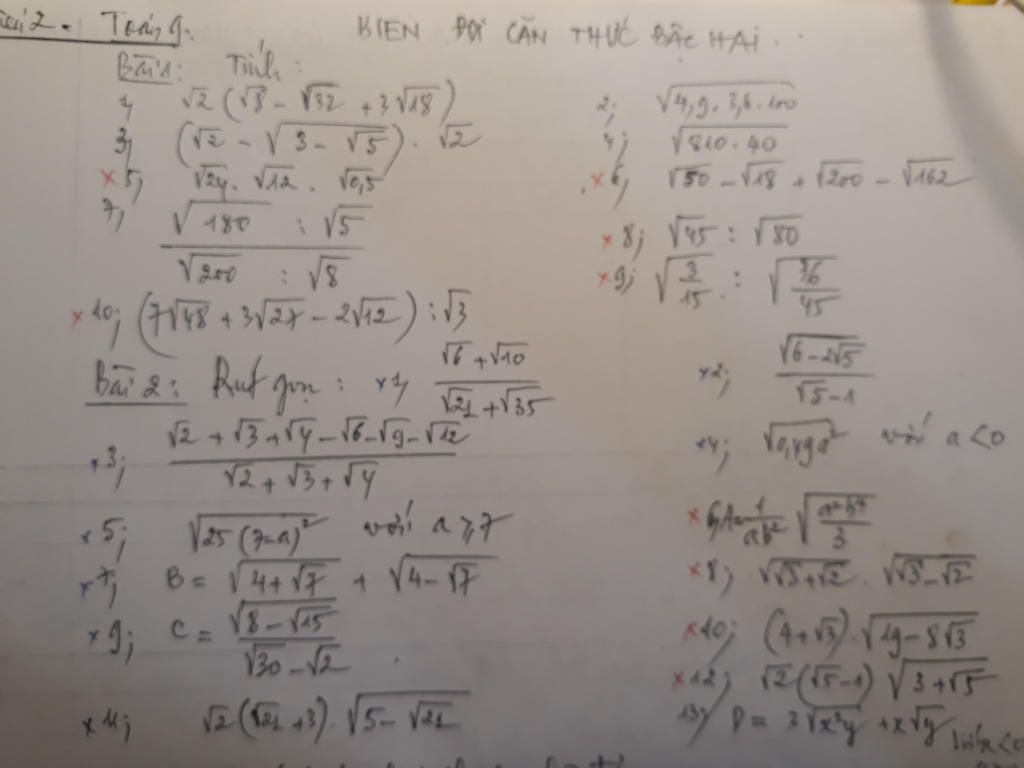 Toán 9. BIẾN ĐỔI CĂN THỨC BẬC HAI..
Bài 1: Tính:
1, √2 (√8 - √32 + 3√18) 2; √(4,9 . 3,6 . 100)
3, (√2 - √(3 - √5)) . √2 4; √(810 . 40)
× 5, √24 . √12 . √0,5 × 6, √50 - √18 + √200 - √162
7, (√180 : √5) / (√200 : √8) × 8; √45 : √80
× 9; √(3/15) : √(36/45)
× 10; (7√48 + 3√27 - 2√12) : √3
Bài 2: Rút gọn: × 1, (√6 + √10) / (√21 + √35) × 2; √(6 - 2√5) / (√5 - 1)
× 3; (√2 + √3 + √4 - √6 - √9 - √12) / (√2 + √3 + √4) × 4; √(0,49a²) với a < 0
× 5; √(25(7-a)²) với a ⩾ 7 × 6, A = 1/(ab²) √(a²b⁴/3)
× 7; B = √(4 + √7) + √(4 - √7) × 8; √(√3 + √2) . √(√3 - √2)
× 9; C = √(8 - √15) / (√30 - √2) × 10; (4 + √3) . √(19 - 8√3)
× 11; √2 (√21 + 3) . √(5 - √21) × 12, √2 (√5 - 1) √(3 + √5)
13, D = 3√(x²y) + x√y với x < 0